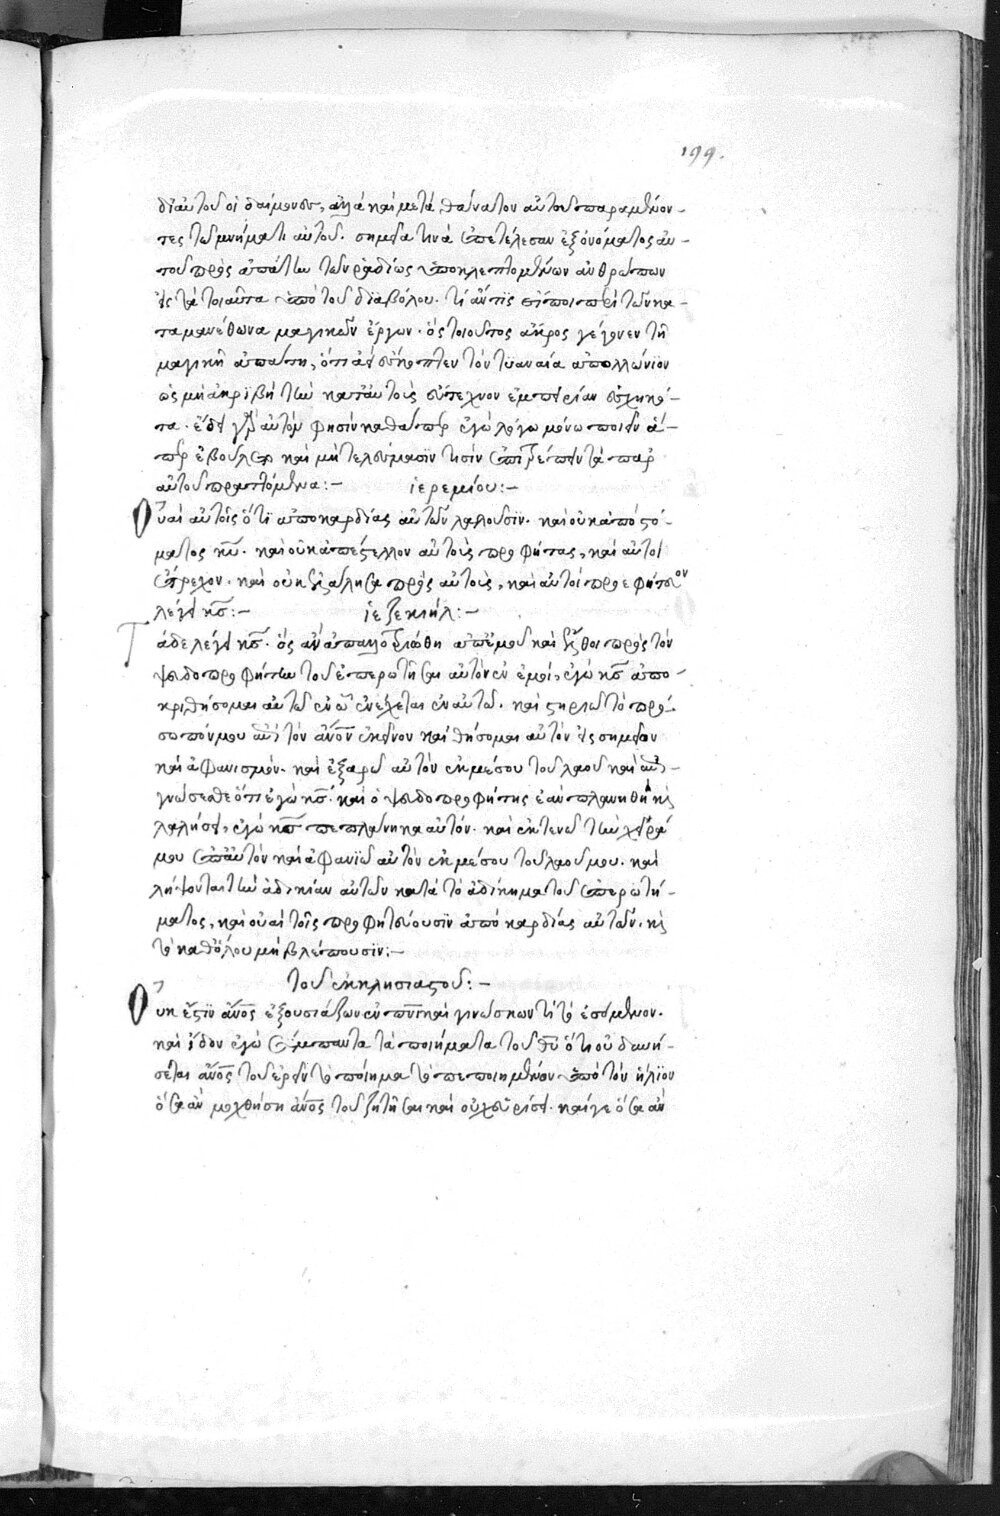 199.
δι' αὐτοῦ οἱ δαίμονες, ἀλλὰ καὶ μετὰ θάνατον αὐτοῦ παραμένον-
τες τῷ μνήματι αὐτοῦ. σημεῖα τινὰ ἐπετέλεσαν ἐξ ὀνόματος αὐ-
τοῦ πρὸς ἀπάτην τῶν ῥαδίως ὑποκλεπτομένων ἀνθρώπων
εἰς τὰ τοιαῦτα ὑπὸ τοῦ διαβόλου. τί ἄν τις εἴποι περὶ τῶν κα-
τὰ μανέθωνα μαγικῶν ἔργων. ὃς τοιοῦτος ἄκρος γέγονεν τῇ
μαγικῇ ἀπάτῃ, ὅτι ἀεὶ τὸν τυαναία ἀπολλώνιον
ὡς μὴ ἀκριβῆ τὴν κατ' αὐτοὺς ἔντεχνον ἐμπειρίαν ἐσχηκό-
τα. ἔδει γὰρ αὐτὸν φησὶν καθάπερ ἐγὼ λόγω μόνω ποιεῖν ἅ-
περ ἐβούλετο καὶ μὴ τελούμασϊν τισὶν ἐπιτρέπειν τὰ παρ'
αὐτοῦ πραττόμενα:- ἱερεμίου:-
Οὐαὶ αὐτοῖς ὅτι ἀπὸ καρδίας αὐτῶν λαλοῦσϊν. καὶ οὐκ ἀπὸ στό-
ματος κυ. καὶ οὐκ ἀπέστελλον αὐτοὺς προφήτας, καὶ αὐτοὶ
ἔτρεχον. καὶ οὐκ ἐλάλησα πρὸς αὐτοὺς, καὶ αὐτοὶ προεφήτευον
λέγει κς:- ἱεζεκιήλ:-
Τάδε λέγει κς. ὃς ἂν ἀπαλλοτριωθῆ ἀπ' ἐμοῦ καὶ ἔλθοι πρὸς τὸν
ψευδοπροφήτην τοῦ ἐπερωτῆσαι αὐτὸν ἐν ἐμοὶ, ἐγὼ κς ἀπο-
κριθήσομαι αὐτῷ ἐν ὧ ἐνέχεται ἐν αὐτῷ. καὶ στηριῶ τὸ πρό-
σωπόν μου ἐπὶ τὸν ἄνον ἐκεῖνον καὶ θήσομαι αὐτὸν εἰς σημεῖον
καὶ ἀφανισμόν. καὶ ἐξαρῶ αὐτὸν ἐκ μέσου τοῦ λαοῦ καὶ ἐπι-
γνώσεσθε ὅτι ἐγὼ κς. καὶ ὁ ψευδοπροφήτης ἐὰν πλανηθῆ κὶ
λαλήσει, ἐγὼ κς πεπλάνηκα αὐτόν. καὶ ἐκτενῶ τὴν χεῖρά
μου ἐπ' αὐτὸν καὶ ἀφανϊῶ αὐτὸν ἐκ μέσου τοῦ λαοῦ μου. καὶ
λήψονται τὴν ἀδικίαν αὐτῶν κατὰ τὸ ἀδίκημα τοῦ ἐπερωτή-
ματος, καὶ οὐαὶ τοῖς προφητεύουσϊν ἀπὸ καρδίας αὐτῶν, κὶ
τὸ καθόλου μὴ βλέπουσϊν:-
Τοῦ ἐκκλησιαστοῦ:-
Οὐκ ἔστϊν ἄνος ἐξουσιάζων ἐν πνι καὶ γινώσκων τί τὸ ἐσόμενον.
καὶ ἴδον ἐγὼ σύμπαντα τὰ ποιήματα τοῦ θυ ὅτι οὐ δυνή-
σεται ἄνος τοῦ εὑρεῖν τὸ ποίημα τὸ πεποιημένον ὑπὸ τὸν ἥλϊον
ὅσα ἂν μοχθήση ἄνος τοῦ ζητῆσαι καὶ οὐχ εὑρίσει. καί γε ὅσα ἂν